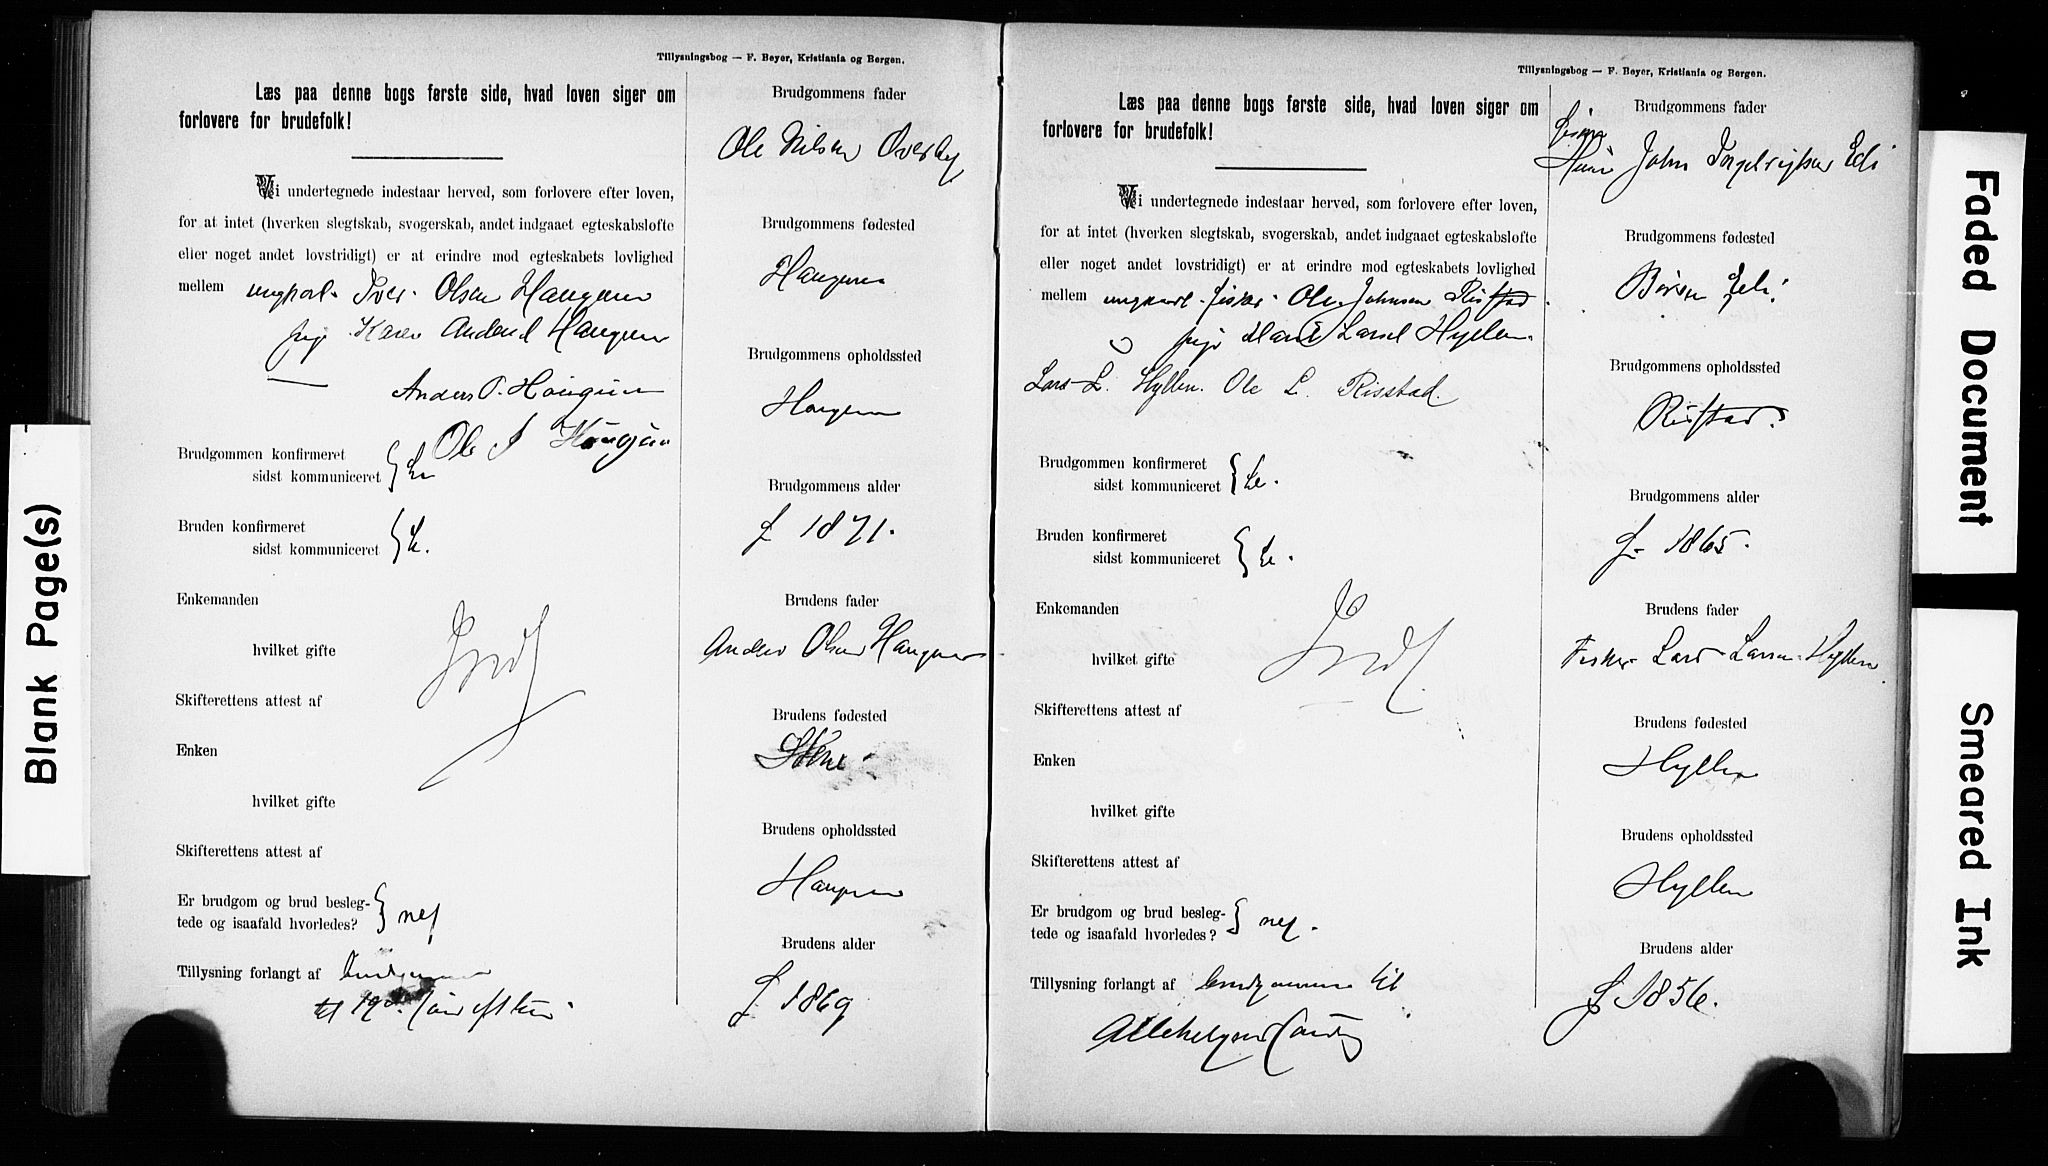 Tillysningsbog — F. Beyer, Kristiania og Bergen.
Læs paa denne bogs første side, hvad loven siger om
forlovere for brudefolk!
Vi undertegnede indestaar herved, som forlovere efter loven,
for at intet (hverken slegtskab, svogerskab, andet indgaaet egteskabsløfte
eller noget andet lovstridigt) er at erindre mod egteskabets lovlighed
mellem ungkarl. Iver Olsen Haugum
pige Karen Andersd Haugum
Anders O. Haugum
Ole Haugum
Brudgommen konfirmeret
sidst kommuniceret
Bruden konfirmeret
sidst kommuniceret
Enkemanden
hvilket gifte
Skifterettens attest af
Enken
hvilket gifte
Skifterettens attest af
Er brudgom og brud besleg-
tede og isaafald hvorledes? nej
Tillysning forlangt af Brudgommen
Brudgommens fader
Ole Nilsen Øverby
Brudgommens fødested
Haugum
Brudgommens opholdssted
Haugum
Brudgommens alder
f 1871.
Brudens fader
Anders Olsen Haugum
Brudens fødested
Brudens opholdssted
Haugum
Brudens alder
f 1869
Tillysningsbog — F. Beyer, Kristiania og Bergen.
Læs paa denne bogs første side, hvad loven siger om
forlovere for brudefolk!
Vi undertegnede indestaar herved, som forlovere efter loven,
for at intet (hverken slegtskab, svogerskab, andet indgaaet egteskabsløfte
eller noget andet lovstridigt) er at erindre mod egteskabets lovlighed
mellem ungkarl. fisker Ole Johnsen Risstad
pige Larsd Hyllen.
Lars L. Hyllen. Ole L. Risstad.
Brudgommen konfirmeret
sidst kommuniceret
Bruden konfirmeret
sidst kommuniceret
Enkemanden
hvilket gifte
Skifterettens attest af
Enken
hvilket gifte
Skifterettens attest af
Er brudgom og brud besleg-
tede og isaafald hvorledes? nej.
Tillysning forlangt af brudgommen til
Allehelgens
Brudgommens fader
John Eli
Brudgommens fødested
Børsen Eli.
Brudgommens opholdssted
Risstad.
Brudgommens alder
f. 1865.
Brudens fader
Fisker Lars Larsen Hyllen
Brudens fødested
Hyllen
Brudens opholdssted
Hyllen
Brudens alder
f 1856.
Blank Page(s)
Faded Document
Smeared Ink